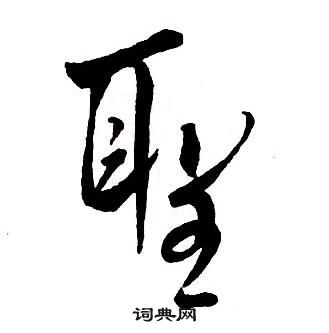 聖
词典网